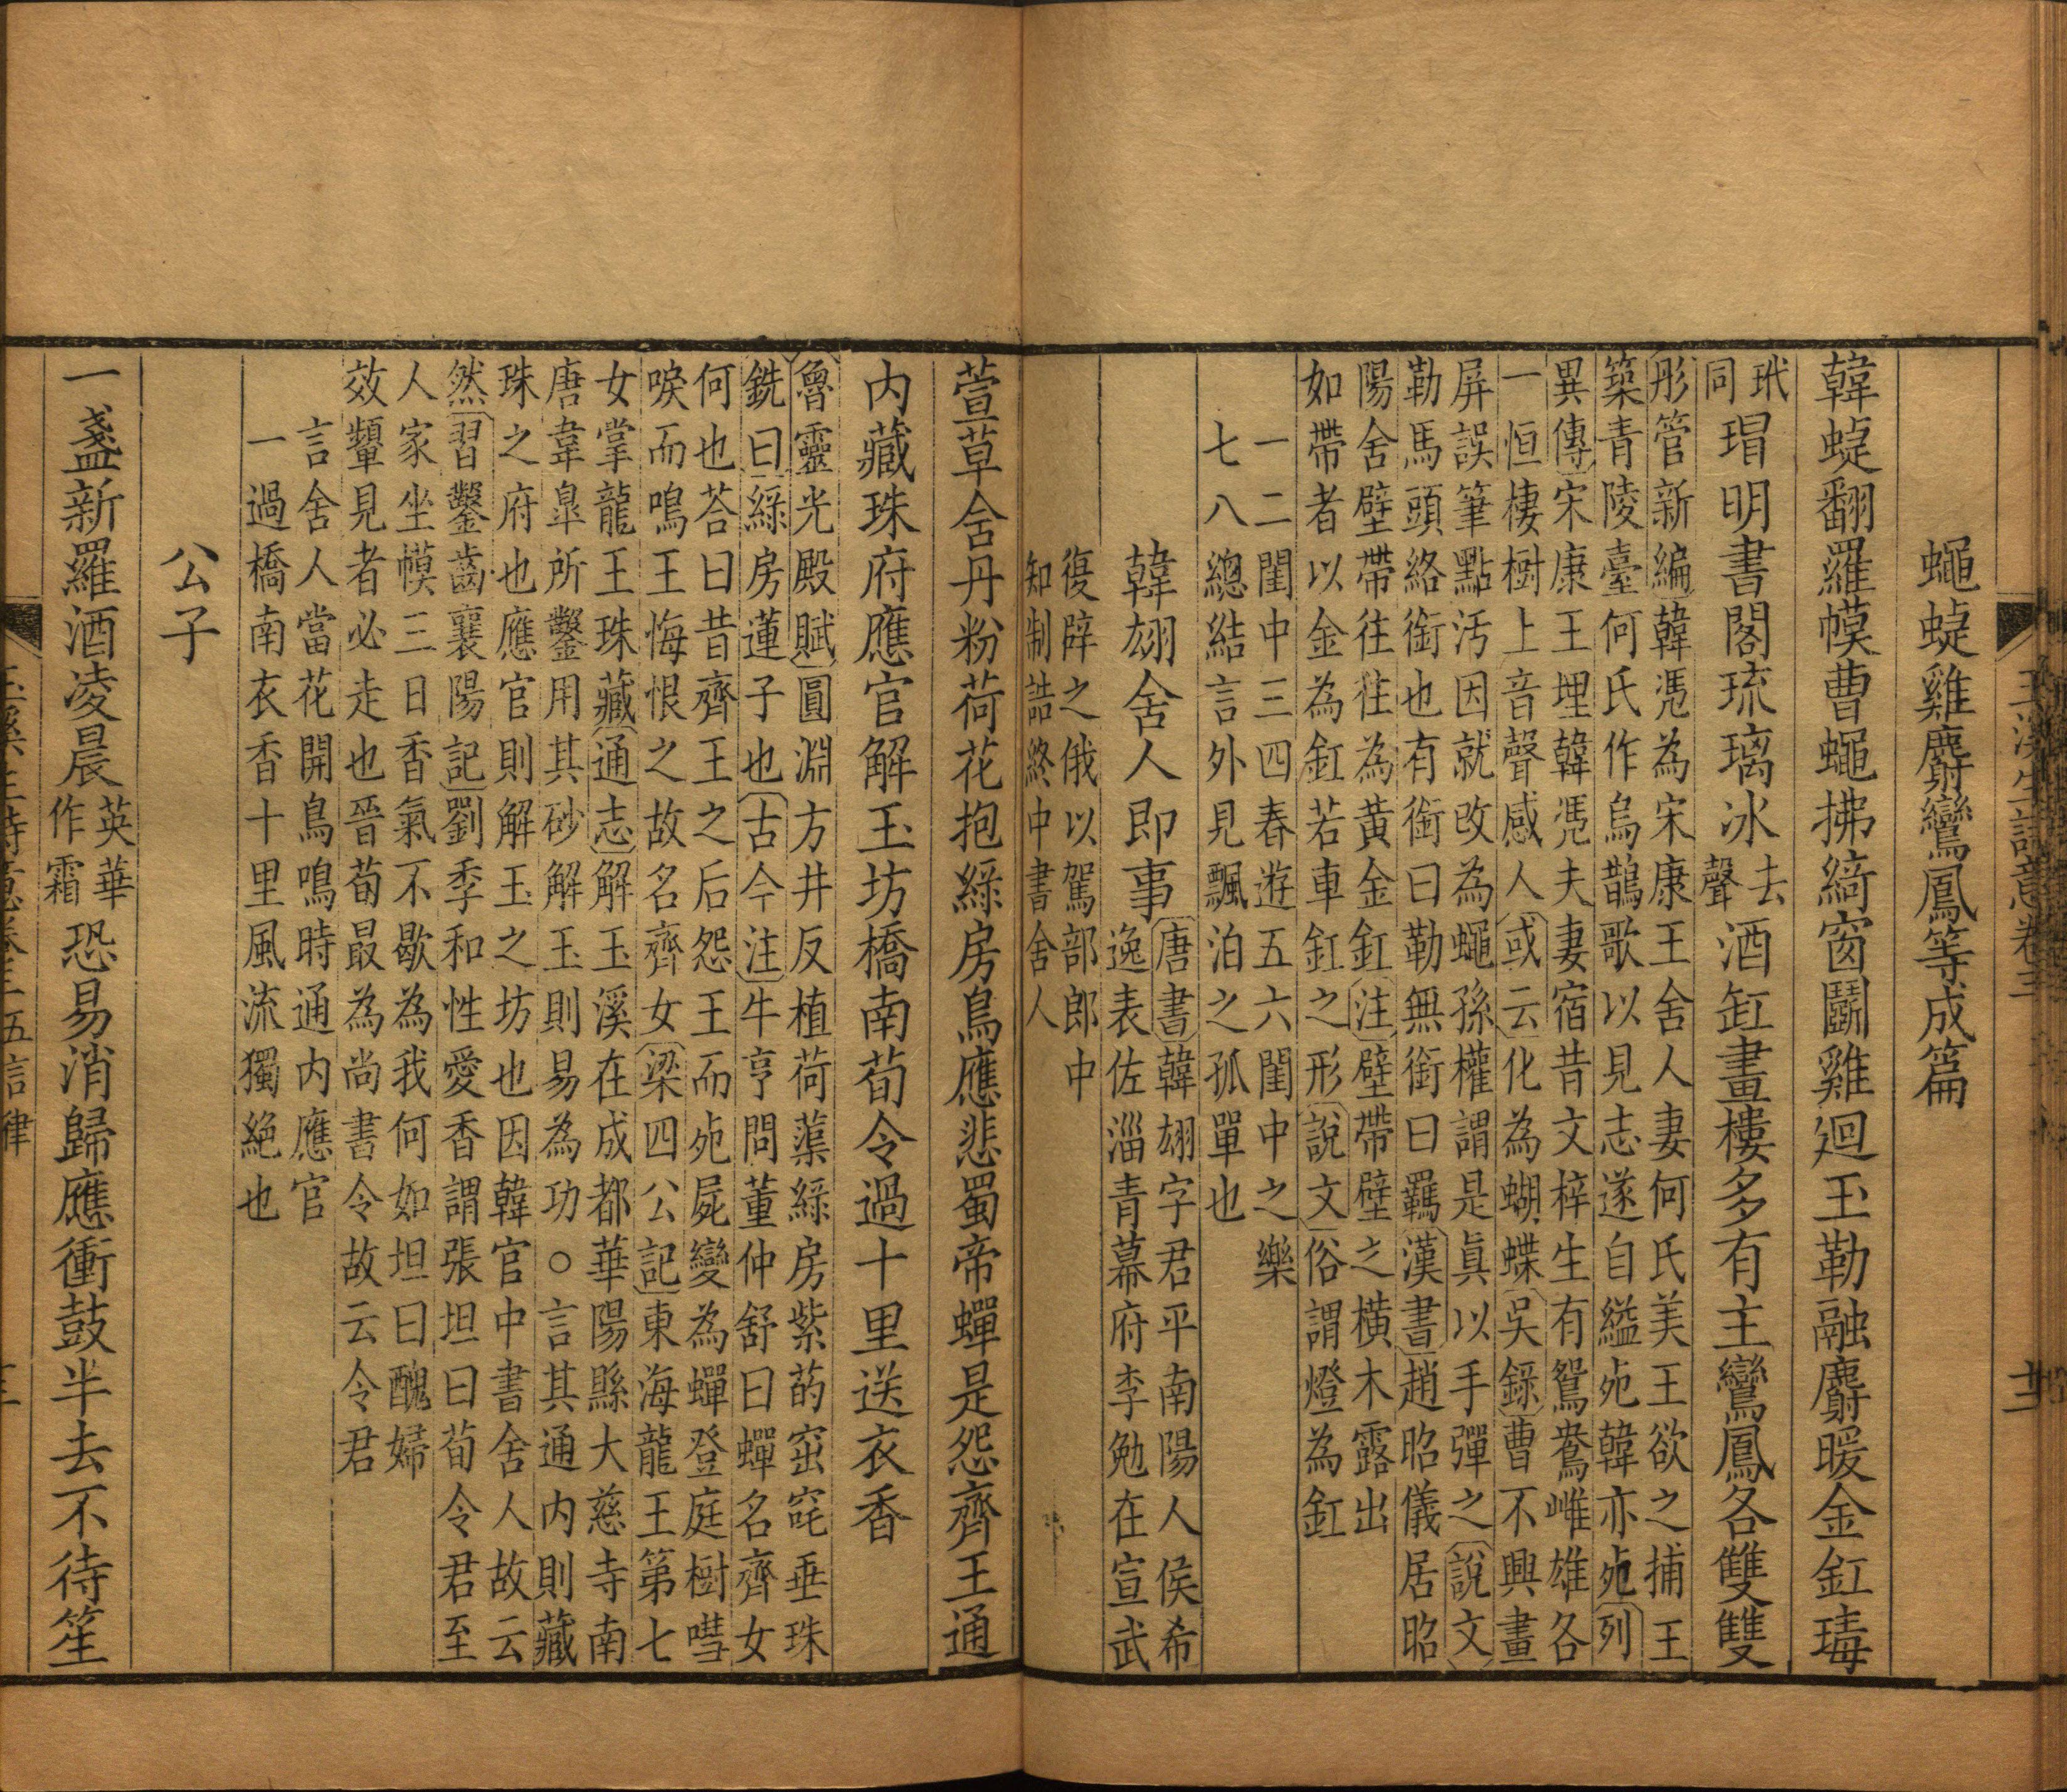 蠅蜨雞麝鸞鳳等成篇
韓蜨翻羅幙曹蠅拂綺窗鬭雞廻玉勒融麝暖金釭瑇
玳同瑁明書閣琉璃冰去聲酒缸畫樓多有主鸞鳳各雙雙
彤管新編韓凭為宋康王舍人妻何氏美王欲之捕王
築青陵臺何氏作烏鵲歌以見志遂自縊死韓亦死列
異傳宋康王埋韓凭夫妻宿昔文梓生有鴛鴦雌雄各
一恒棲樹上音聲感人或云化為蝴蝶吳錄曹不興畫
屏誤筆點汚因就改為蠅孫權謂是真以手彈之說文
勒馬頭絡銜也有銜曰勒無銜曰羈漢書趙昭儀居昭
陽舍壁帶往往為黃金釭注壁帶壁之橫木露出
如帶者以金為釭若車釭之形說文俗謂燈為釭
一二閨中三四春遊五六閨中之樂
七八總結言外見飄泊之孤單也
韓翃舍人即事唐書韓翃字君平南陽人侯希
逸表佐淄青幕府李勉在宣武
復辟之俄以駕部郎中
知制誥終中書舍人
萱草含丹粉荷花抱綠房鳥應悲蜀帝蟬是怨齊王通
内藏珠府應官解玉坊橋南荀令過十里送衣香
魯靈光殿賦圓淵方井反植荷蕖綠房紫菂窋窀垂珠
銑曰綠房蓮子也古今注牛亨問董仲舒曰蟬名齊女
何也荅曰昔齊王之后怨王而死屍變為蟬登庭樹嘒
唳而鳴王悔恨之故名齊女梁四公記東海龍王第七
女掌龍王珠藏通志解玉溪在成都華陽縣大慈寺南
唐韋臯所鑿用其砂解玉則易為功○言其通内則藏
珠之府也應官則解玉之坊也因韓官中書舍人故云
然習鑿齒襄陽記劉季和性愛香謂張坦曰荀令君至
人家坐幙三日香氣不歇為我何如坦曰醜婦
效顰見者必走也晉荀最為尚書令故云令君
言舍人當花開鳥鳴時通内應官
一過橋南衣香十里風流獨絶也
公子
一盞新羅酒凌晨英華作霜恐易消歸應衝鼓半去不待笙